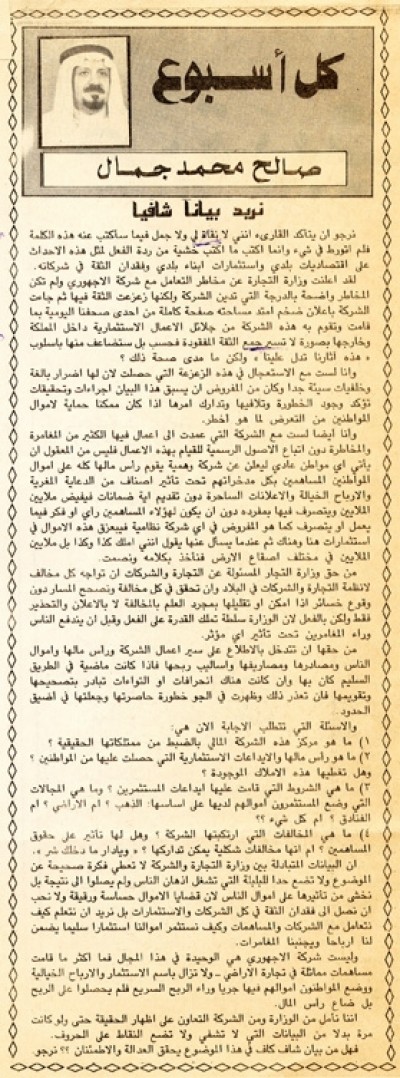 كل أسبوع
صالح محمد جمال
نريد بيانا شافيا
نرجو ان يتأكد القارىء انني لا ناقة لي ولا جمل فيما سأكتب عنه هذه الكلمة
فلم اتورط في شيء وانما اكتب ما اكتب خشية من ردة الفعل لمثل هذه الاحداث
على اقتصاديات بلدي واستثمارات ابناء بلدي وفقدان الثقة في شركاته.
لقد اعلنت وزارة التجارة عن مخاطر التعامل مع شركة الاجهوري ولم تكن
المخاطر واضحة بالدرجة التي تدين الشركة ولكنها زعزعت الثقة فيها ثم جاءت
الشركة باعلان ضخم امتد مساحته صفحة كاملة من احدى صحفنا اليومية بما
قامت وتقوم به هذه الشركة من جلائل الاعمال الاستثمارية داخل المملكة
وخارجها بصورة لا تسير جمع الثقة المفقودة فحسب بل ستضاعف منها باسلوب
« هذه آثارنا تدل علينا » ولكن ما مدى صحة ذلك ؟
وانا لست مع الاستعجال في هذه الزعزعة التي حصلت لان لها اضرار بالغة
وخلفيات سيئة جدا وكان من المفروض ان يسبق هذا البيان اجراءات وتحقيقات
تؤكد وجود الخطورة وتلافيها وتدارك امرها اذا كان ممكنا حماية لاموال
المواطنين من التعرض لما هو اخطر.
وانا ايضا لست مع الشركة التي عمدت الى اعمال فيها الكثير من المغامرة
والمخاطرة دون اتباع الاصول الرسمية للقيام بهذه الاعمال فليس من المعقول ان
يأتي اي مواطن عادي ليعلن عن شركة وهمية يقوم رأس مالها كله على اموال
المواطنين المساهمين بكل مدخراتهم تحت تأثير اصناف من الدعاية المغرية
والارباح الخيالة والاعلانات الساحرة دون تقديم اية ضمانات فيفيض ملايين
الملايين ويتصرف فيها بمفرده دون ان يكون لهؤلاء المساهمين راي او فكر فيما
يعمل او يتصرف كما هو المفروض في اي شركة نظامية فيبعزق هذه الاموال في
استثمارات هنا وهناك ثم عندما يسأل عنها يقول انني املك كذا وكذا بل ملايين
الملايين في مختلف اصقاع الارض فنأخذ بكلامه ونصمت.
من حق وزارة التجار المسئولة عن التجارة والشركات ان تواجه كل مخالف
لانظمة التجارة والشركات في البلاد وان تحقق في كل مخالفة وتصحح المسار دون
وقوع خسائر اذا امكن او تقليلها بمجرد العلم بالمخالفة لا بالاعلان والتحذير
فقط ولكن بالفعل لان الوزارة سلطة تملك القدرة على الفعل وقبل ان يندفع الناس
وراء المغامرين تحت تأثير اي مؤثر.
من حقها ان تتدخل بالاطلاع على سير اعمال الشركة ورأس مالها واموال
الناس ومصادرها ومصاريفها واساليب ربحها فاذا كانت ماضية في الطريق
السليم كان بها وان كانت هناك انحرافات او التواءات تبادر بتصحيحها
وتقويمها فان تعذر ذلك وظهرت في الجو خطورة حاصرتها وجعلتها في اضيق
الحدود.
والاسئلة التي تتطلب الاجابة الان هي:
١) ما هو مركز هذه الشركة المالي بالضبط من ممتلكاتها الحقيقية ؟
٢) ما هو رأس مالها والايداعات الاستثمارية التي حصلت عليها من المواطنين ؟
وهل تغطيها هذه الاملاك الموجودة ؟
٣) ما هي الشروط التي قامت عليها ايداعات المستثمرين ؟ وما هي المجالات
التي وضع المستثمرون اموالهم لديها على اساسها: الذهب ؟ ام الاراضي ؟ ام
الفنادق ؟ ام كل شيء ؟؟
٤) ما هي المخالفات التي ارتكبتها الشركة ؟ وهل لها تأثير على حقوق
المساهمين ؟ ام انها مخالفات شكلية يمكن تداركها ؟ « ويادار ما دخلك شر ».
ان البيانات المتبادلة بين وزارة التجارة والشركة لا تعطي فكرة صحيحة عن
الموضوع ولا تضع حدا للبلبلة التي تشغل اذهان الناس ولم يصلوا الى نتيجة بل
نخشى من تأثيرها على اموال الناس لان قضايا الاموال حساسة ورقيقة ولا نحب
ان نصل الى فقدان الثقة في كل الشركات والاستثمارات بل نريد ان نتعلم كيف
نتعامل مع الشركات والمساهمات وكيف نستثمر اموالنا استثمارا سليما يضمن
لنا ارباحا ويجنبنا المغامرات.
وليست شركة الاجهوري هي الوحيدة في هذا المجال فما اكثر ما قامت
مساهمات مماثلة في تجارة الاراضي .. ولا تزال باسم الاستثمار والارباح الخيالية
ووضع المواطنون اموالهم فيها جريا وراء الربح السريع فلم يحصلوا على الربح
بل ضاع رأس المال.
اننا نأمل من الوزارة ومن الشركة التعاون على اظهار الحقيقة حتى ولو كانت
مرة بدلا من البيانات التي لا تشفي ولا تضع النقاط على الحروف.
فهل من بيان شاف كاف في هذا الموضوع يحقق العدالة والاطمئنان ؟؟ نرجو.